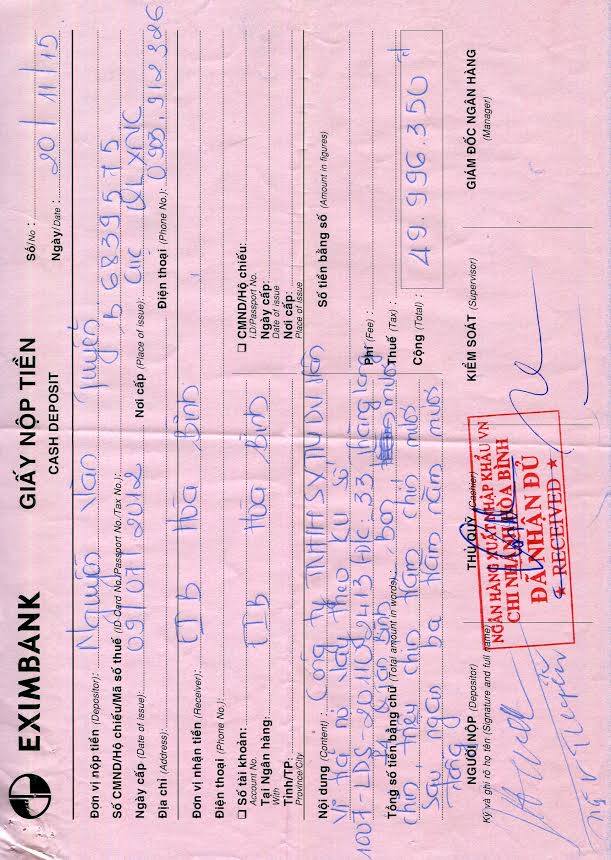 EXIMBANK
GIẤY NỘP TIỀN
CASH DEPOSIT
Số/No :
Ngày/Date : 20/11/15
Đơn vị nộp tiền (Depositor): Nguyễn Văn Tuyển
Số CMND/Hộ chiếu/Mã số thuế (ID Card No./Passport No./Tax No.): B 6839575
Ngày cấp (Date of issue): 09/07/2012 Nơi cấp (Place of issue): Cục QLXNC
Địa chỉ (Address): Điện thoại (Phone No.): 0903.912326
Đơn vị nhận tiền (Receiver): EIB Hòa Bình
Điện thoại (Phone No.):
❑ Số tài khoản:
Account No.
❑ CMND/Hộ chiếu:
I.D/Passport No.
Tại Ngân hàng: EIB Hòa Bình
With
Ngày cấp:
Date of issue
Tỉnh/TP:
Province/City
Nơi cấp:
Place of issue
Nội dung (Content): Công ty TNHH SX TM DV
Số tiền bằng số (Amount in figures)
trả nợ vay theo KU số
1007-LDS-201109413 Đ/c: 33 hàng long
Phí (Fee) :
Thuế (Tax) :
Tổng số tiền bằng chữ (Total amount in words): bốn mươi
Cộng (Total) : 49.996.350 đ
chín triệu chín trăm chín mươi
sáu ngàn ba trăm năm mươi
đồng
NGƯỜI NỘP (Depositor)
Ký và ghi rõ họ tên (Signature and full name)
THỦ QUỸ (Cashier)
KIỂM SOÁT (Supervisor)
GIÁM ĐỐC NGÂN HÀNG
(Manager)
NGÂN HÀNG XUẤT NHẬP KHẨU VN
CHI NHÁNH HÒA BÌNH
ĐÃ NHẬN ĐỦ
★ RECEIVED ★
Ng V Tuyển